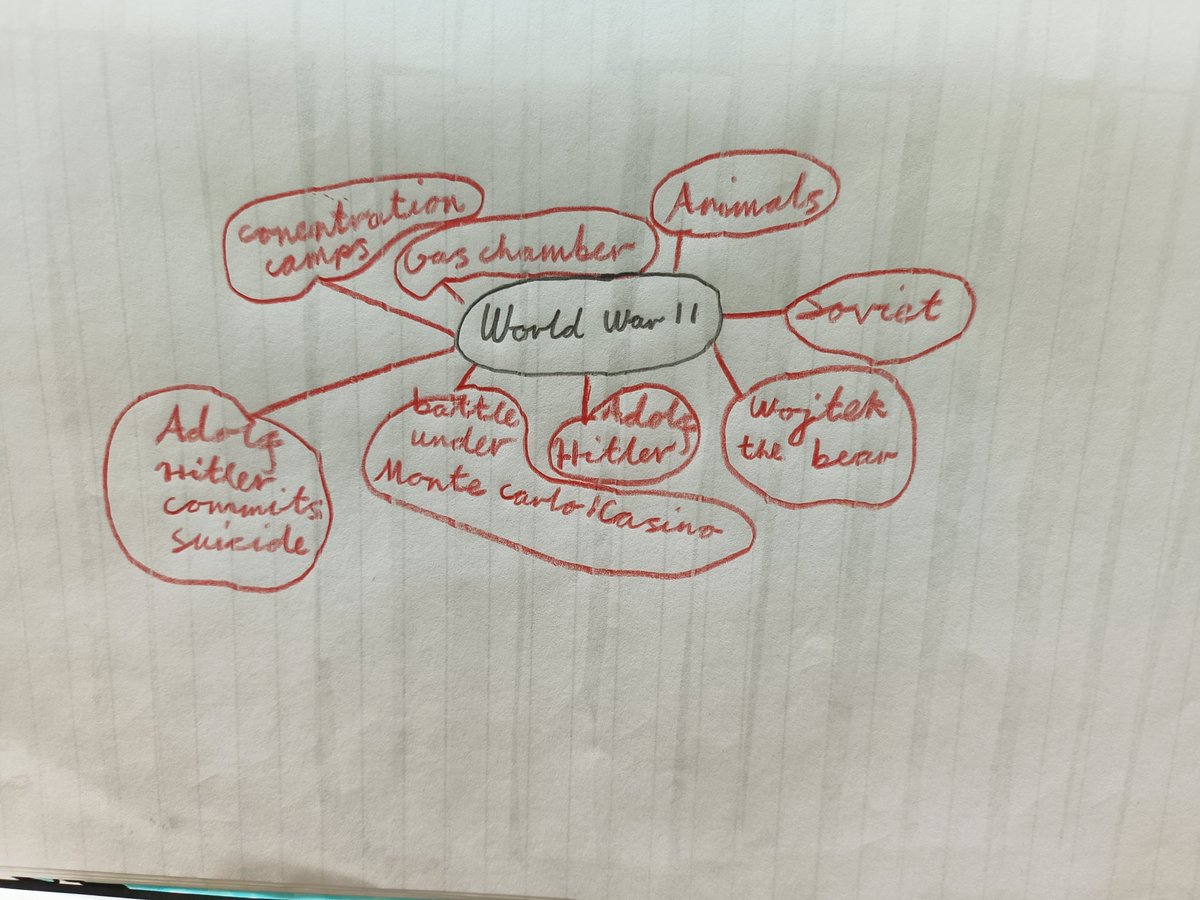 conentration
camps
Gas chamber
Animals
World War II
Soviet
Adolf
Hitler
commits
suicide
battle
under
Monte carlo/Casino
Adolf
Hitler
Wojtek
the bear